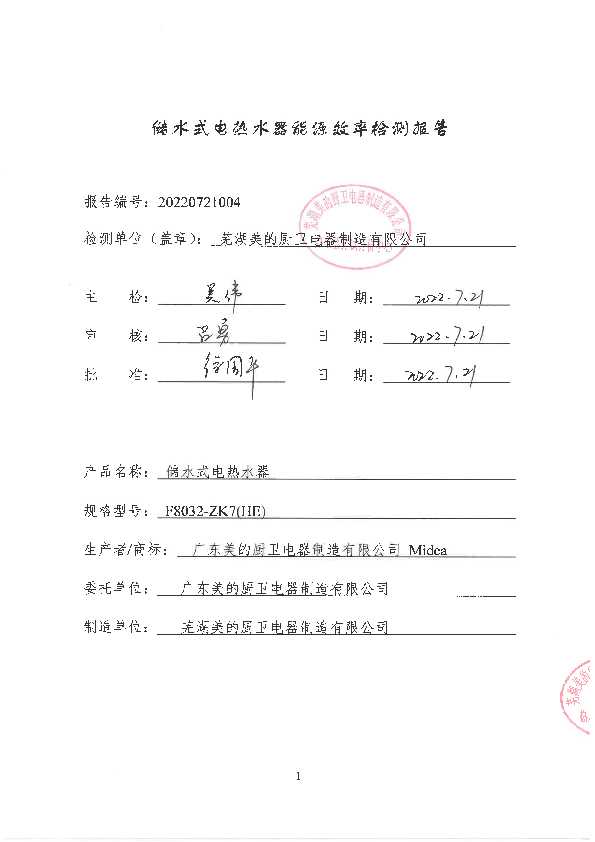 储水式电热水器能源效率检测报告
报告编号：20220721004
检测单位（盖章）：芜湖美的厨卫电器制造有限公司
主 检：吴伟 日 期：2022.7.21
审 核：吕勇 日 期：2022.7.21
批 准：徐国平 日 期：2022.7.21
产品名称：储水式电热水器
规格型号：F8032-ZK7(HE)
生产者/商标：广东美的厨卫电器制造有限公司 Midea
委托单位：广东美的厨卫电器制造有限公司
制造单位：芜湖美的厨卫电器制造有限公司
芜湖美的厨卫电器制造有限公司
芜湖美的
1